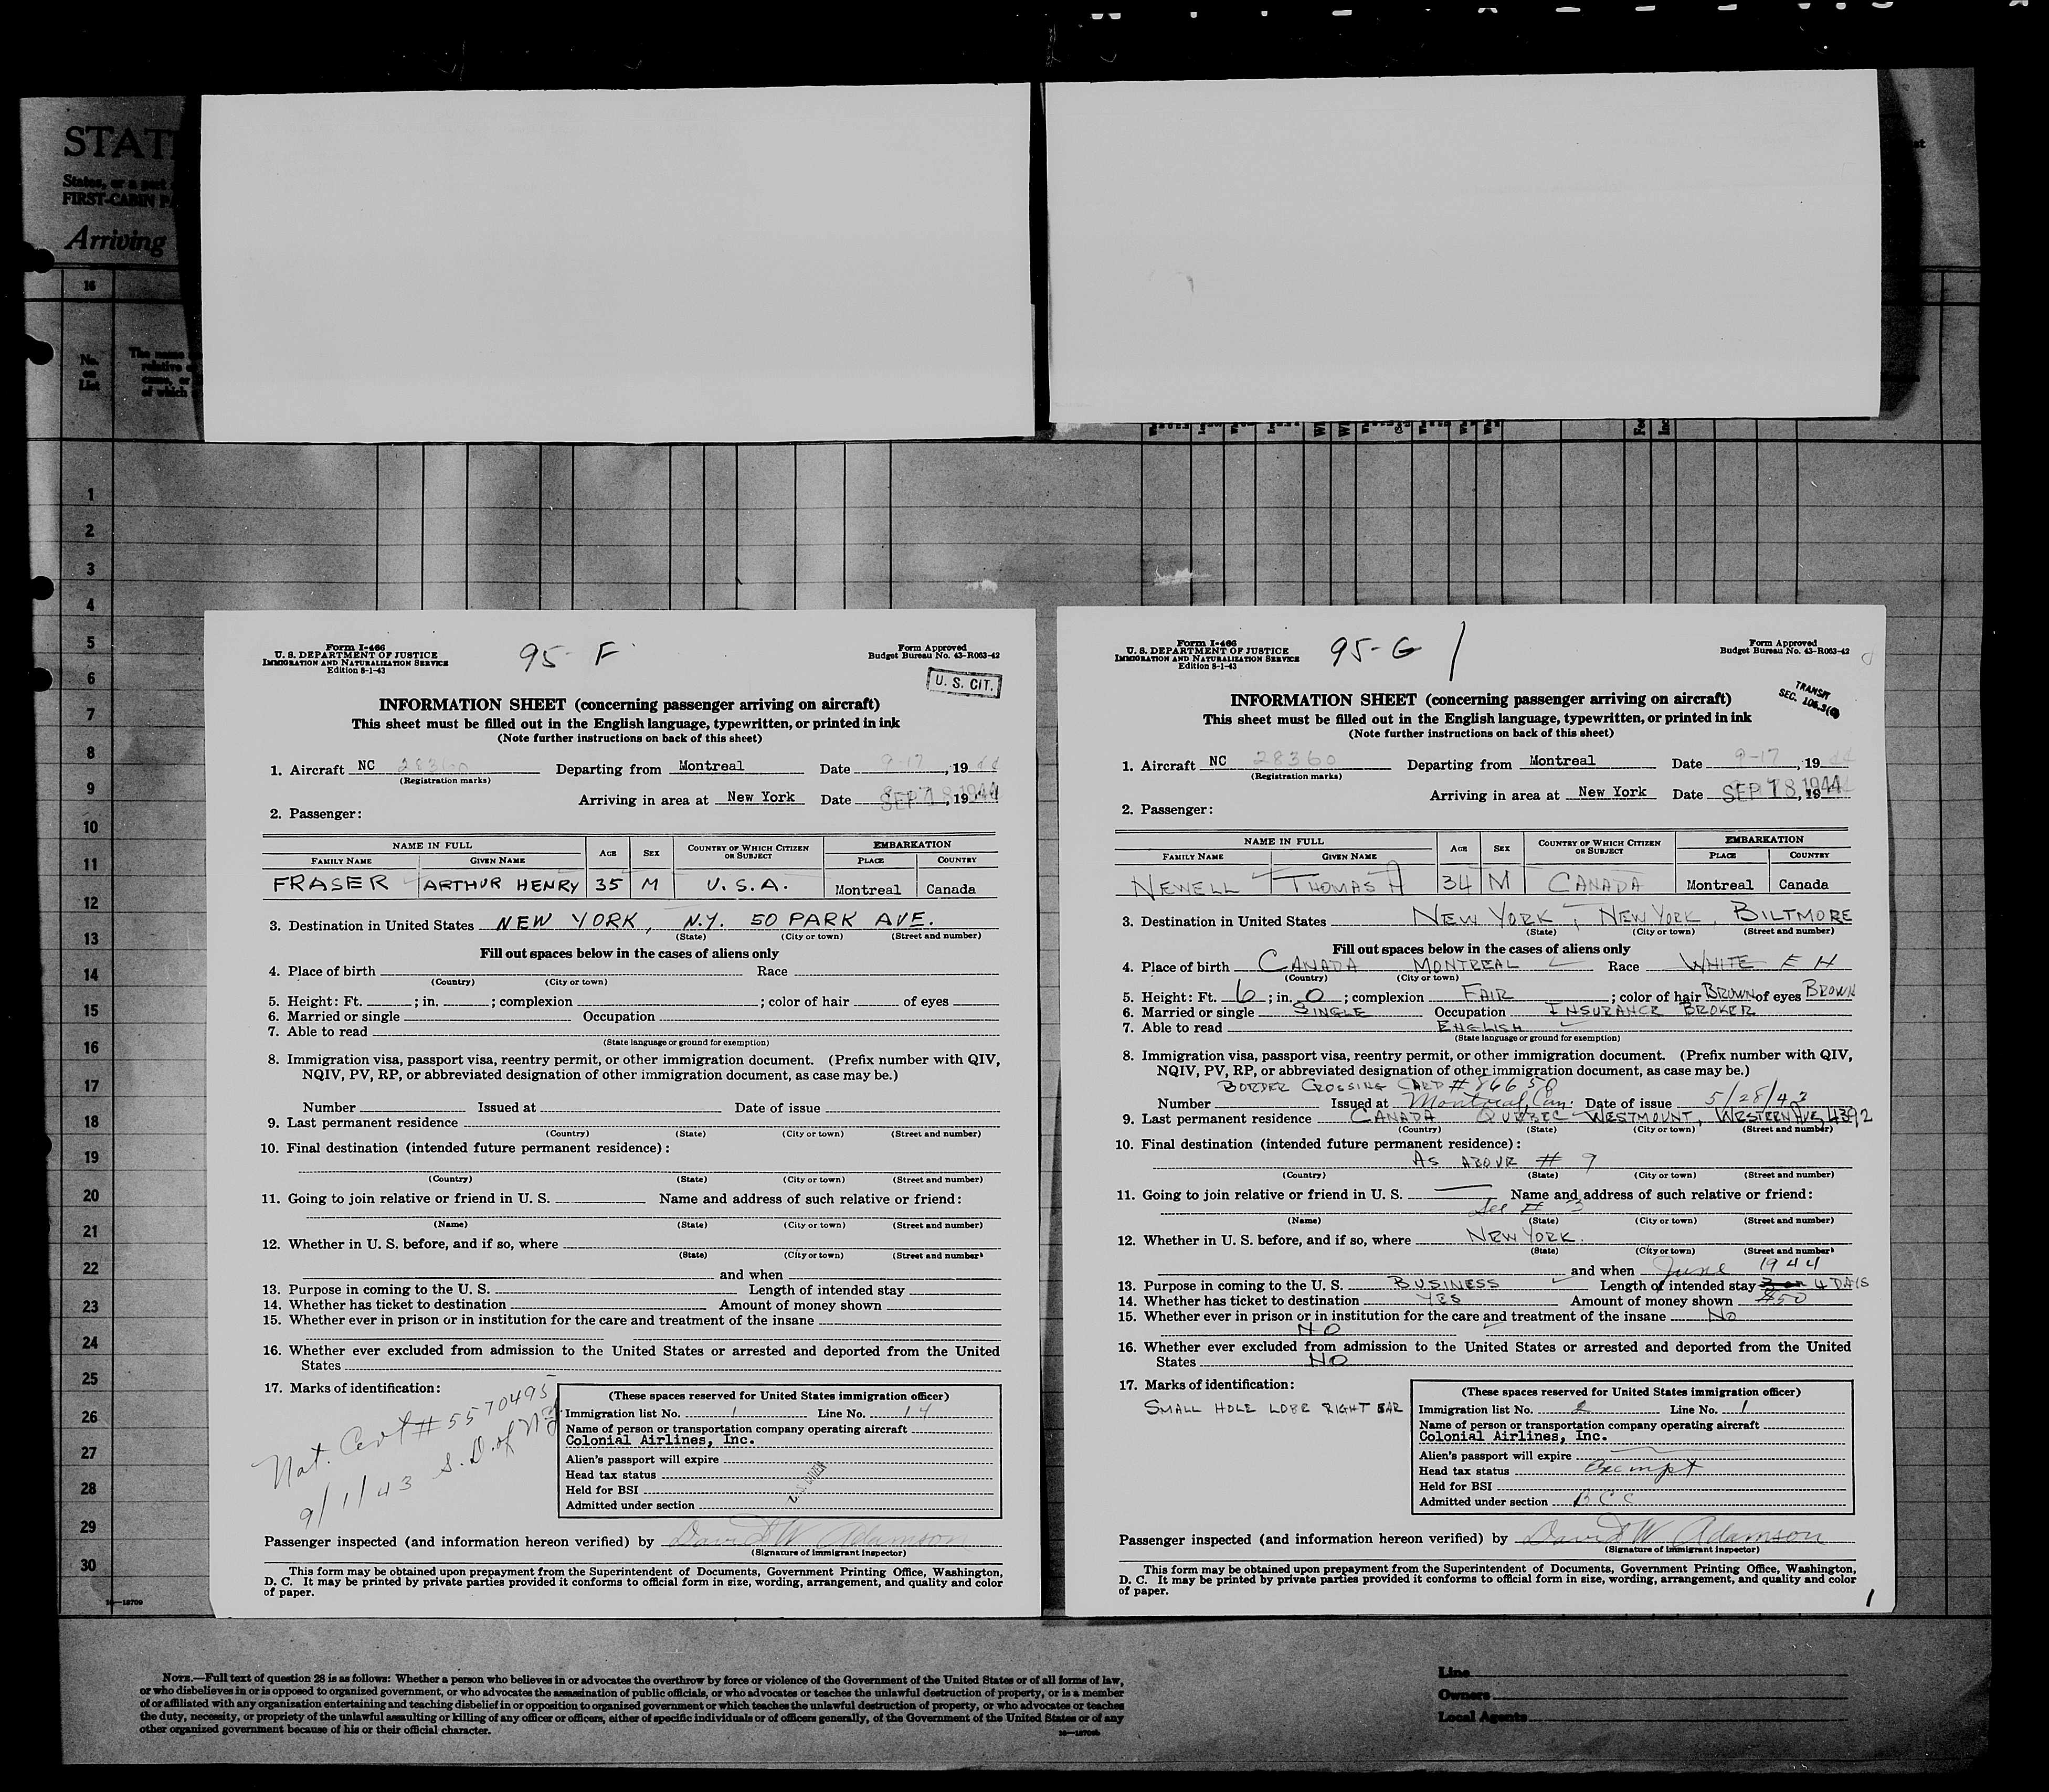 STAT
States, or a part
FIRST-CABIN PA
Arriving
16
No.
on
List
The name
relative
of which
1
2
3
4
5
6
7
8
9
10
11
12
13
14
15
16
17
18
19
20
21
22
23
24
25
26
27
28
29
30
Form I-466
U. S. DEPARTMENT OF JUSTICE
IMMIGRATION AND NATURALIZATION SERVICE
Edition 8-1-43
95- F
Form Approved
Budget Bureau No. 43-R063-42
U. S. CIT.
INFORMATION SHEET (concerning passenger arriving on aircraft)
This sheet must be filled out in the English language, typewritten, or printed in ink
(Note further instructions on back of this sheet)
1. Aircraft NC 28360 Departing from Montreal Date 9-17, 19 44
(Registration marks)
Arriving in area at New York Date SEP 18 1944, 19
2. Passenger:
NAME IN FULL AGE SEX COUNTRY OF WHICH CITIZEN OR SUBJECT EMBARKATION
FAMILY NAME GIVEN NAME PLACE COUNTRY
FRASER ARTHUR HENRY 35 M U.S.A. Montreal Canada
3. Destination in United States NEW YORK, N.Y. 50 PARK AVE.
(State) (City or town) (Street and number)
Fill out spaces below in the cases of aliens only
4. Place of birth Race
(Country) (City or town)
5. Height: Ft. ; in. ; complexion ; color of hair of eyes
6. Married or single Occupation
7. Able to read
(State language or ground for exemption)
8. Immigration visa, passport visa, reentry permit, or other immigration document. (Prefix number with QIV,
NQIV, PV, RP, or abbreviated designation of other immigration document, as case may be.)
Number Issued at Date of issue
9. Last permanent residence
(Country) (State) (City or town) (Street and number)
10. Final destination (intended future permanent residence):
(Country) (State) (City or town) (Street and number)
11. Going to join relative or friend in U. S. Name and address of such relative or friend:
(Name) (State) (City or town) (Street and number)
12. Whether in U. S. before, and if so, where
(State) (City or town) (Street and number)
and when
13. Purpose in coming to the U. S. Length of intended stay
14. Whether has ticket to destination Amount of money shown
15. Whether ever in prison or in institution for the care and treatment of the insane
16. Whether ever excluded from admission to the United States or arrested and deported from the United
States
17. Marks of identification:
Nat. Cert # 5570495
9/1/43 S. D. of NY
(These spaces reserved for United States immigration officer)
Immigration list No. 1 Line No. 14
Name of person or transportation company operating aircraft
Colonial Airlines, Inc.
Alien's passport will expire
Head tax status
Held for BSI
Admitted under section
U. S. CITIZEN
Passenger inspected (and information hereon verified) by David W Adamson
(Signature of immigrant inspector)
This form may be obtained upon prepayment from the Superintendent of Documents, Government Printing Office, Washington,
D. C. It may be printed by private parties provided it conforms to official form in size, wording, arrangement, and quality and color
of paper.
Form I-466
U. S. DEPARTMENT OF JUSTICE
IMMIGRATION AND NATURALIZATION SERVICE
Edition 8-1-43
95-G /
Form Approved
Budget Bureau No. 43-R063-42
TRANSIT
SEC. 106.3(
INFORMATION SHEET (concerning passenger arriving on aircraft)
This sheet must be filled out in the English language, typewritten, or printed in ink
(Note further instructions on back of this sheet)
1. Aircraft NC 28360 Departing from Montreal Date 9-17, 19 44
(Registration marks)
Arriving in area at New York Date SEP 18 1944, 19
2. Passenger:
NAME IN FULL AGE SEX COUNTRY OF WHICH CITIZEN OR SUBJECT EMBARKATION
FAMILY NAME GIVEN NAME PLACE COUNTRY
NEWELL THOMAS A 34 M CANADA Montreal Canada
3. Destination in United States NEW YORK, NEW YORK, BILTMORE
(State) (City or town) (Street and number)
Fill out spaces below in the cases of aliens only
4. Place of birth CANADA MONTREAL Race WHITE E H
(Country) (City or town)
5. Height: Ft. 6 ; in. 0 ; complexion FAIR ; color of hair BROWN of eyes BROWN
6. Married or single SINGLE Occupation INSURANCE BROKER
7. Able to read ENGLISH
(State language or ground for exemption)
8. Immigration visa, passport visa, reentry permit, or other immigration document. (Prefix number with QIV,
NQIV, PV, RP, or abbreviated designation of other immigration document, as case may be.)
BORDER CROSSING CARD # 86650
Number Issued at Montreal, Can. Date of issue 5/28/43
9. Last permanent residence CANADA QUEBEC WESTMOUNT, WESTERN AVE, 4392
(Country) (State) (City or town) (Street and number)
10. Final destination (intended future permanent residence):
AS ABOVE # 9
(Country) (State) (City or town) (Street and number)
11. Going to join relative or friend in U. S. — Name and address of such relative or friend:
See # 3
(Name) (State) (City or town) (Street and number)
12. Whether in U. S. before, and if so, where NEW YORK.
(State) (City or town) (Street and number)
and when June 1944
13. Purpose in coming to the U. S. BUSINESS Length of intended stay 4 DAYS
14. Whether has ticket to destination YES Amount of money shown $50
15. Whether ever in prison or in institution for the care and treatment of the insane No
NO
16. Whether ever excluded from admission to the United States or arrested and deported from the United
States NO
17. Marks of identification:
SMALL HOLE LOBE RIGHT EAR
(These spaces reserved for United States immigration officer)
Immigration list No. 2 Line No. 1
Name of person or transportation company operating aircraft
Colonial Airlines, Inc.
Alien's passport will expire
Head tax status Exempt
Held for BSI
Admitted under section BCC
Passenger inspected (and information hereon verified) by David W Adamson
(Signature of immigrant inspector)
This form may be obtained upon prepayment from the Superintendent of Documents, Government Printing Office, Washington,
D. C. It may be printed by private parties provided it conforms to official form in size, wording, arrangement, and quality and color
of paper.
1
NOTE.—Full text of question 28 is as follows: Whether a person who believes in or advocates the overthrow by force or violence of the Government of the United States or of all forms of law,
or who disbelieves in or is opposed to organized government, or who advocates the assassination of public officials, or who advocates or teaches the unlawful destruction of property, or is a member
of or affiliated with any organization entertaining and teaching disbelief in or opposition to organized government or which teaches the unlawful destruction of property, or who advocates or teaches
the duty, necessity, or propriety of the unlawful assaulting or killing of any officer or officers, either of specific individuals or of officers generally, of the Government of the United States or of any
other organized government because of his or their official character.
Line
Owners
Local Agents